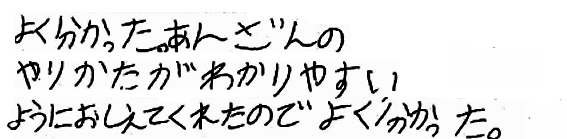 よく分かった。あんざんの
やりかたがわかりやすい
ようにおしえてくれたのでよく分かった。